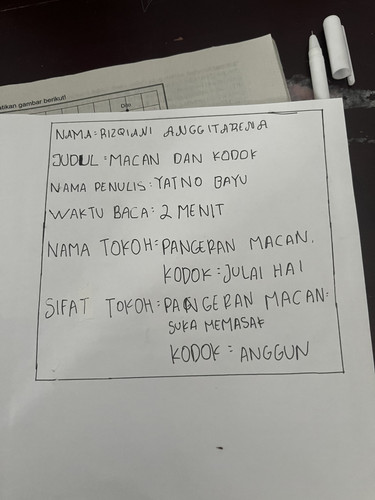 atikan gambar berikut!
Dito
NAMA : RIZQIANI ANGGITARENA
JUDUL : MACAN DAN KODOK
NAMA PENULIS : YATNO BAYU
WAKTU BACA : 2 MENIT
NAMA TOKOH : PANGERAN MACAN.
KODOK : JULAI HAI
SIFAT TOKOH : PANGERAN MACAN :
SUKA MEMASAK
KODOK : ANGGUN